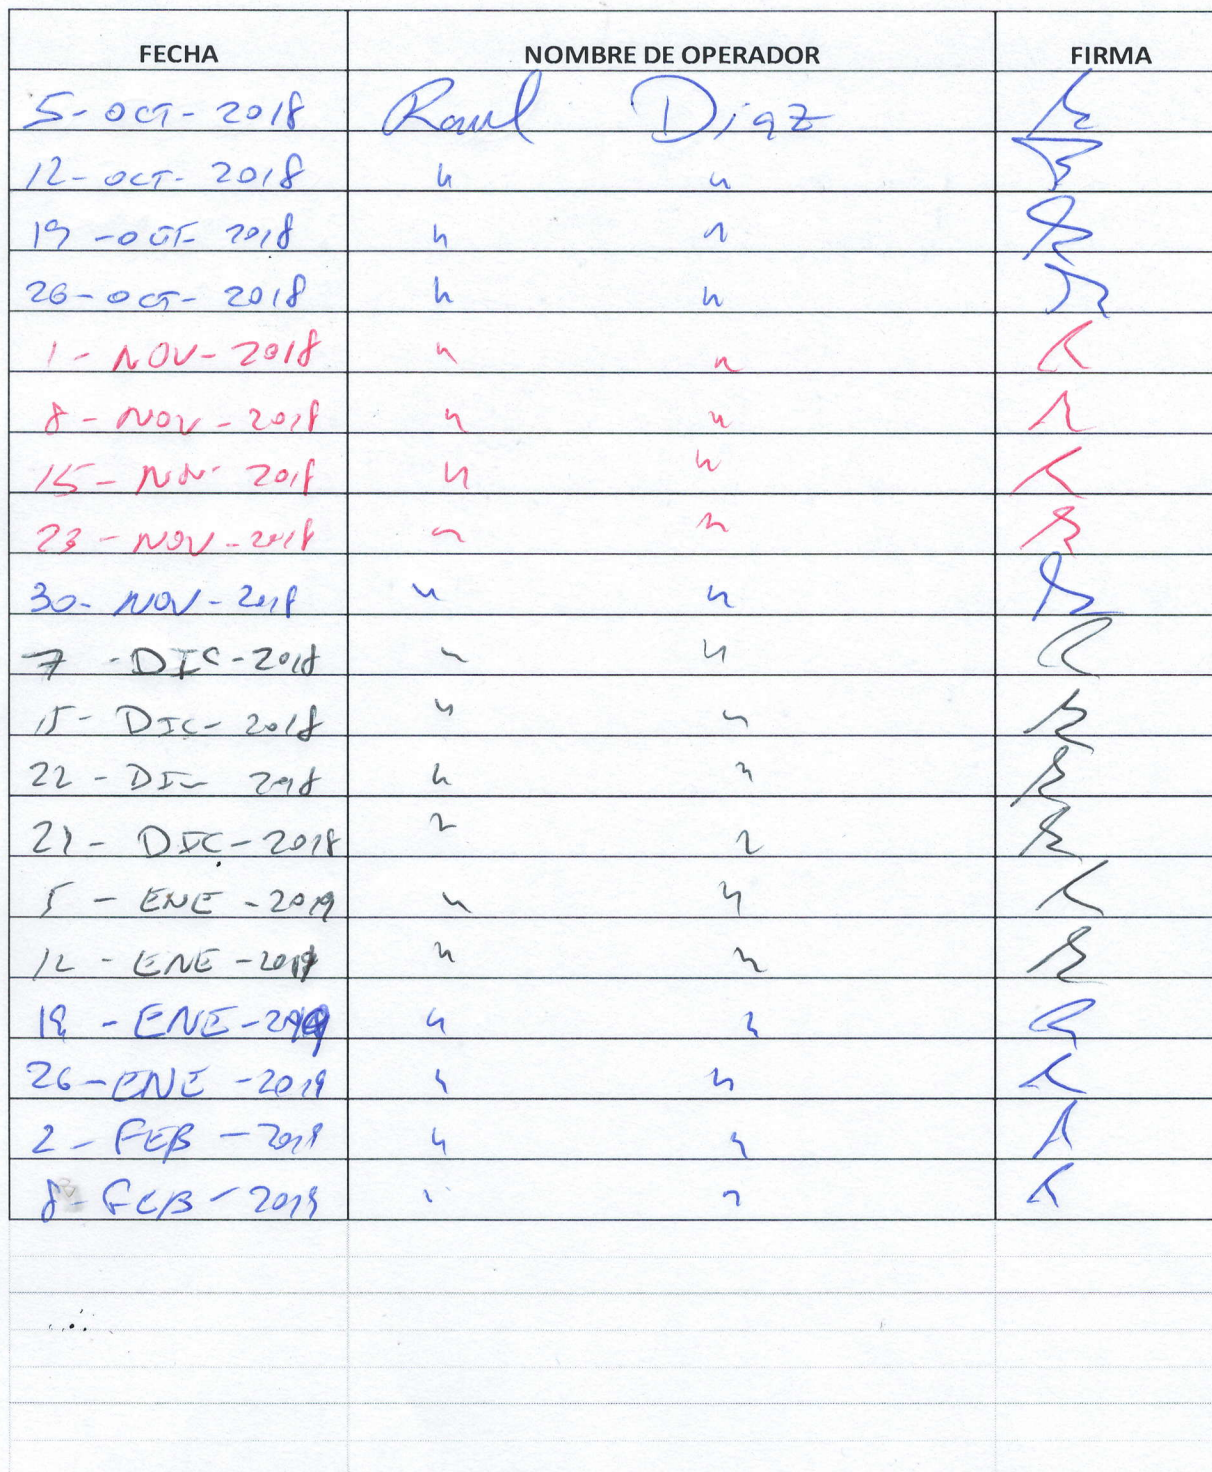 FECHA NOMBRE DE OPERADOR FIRMA
5-OCT-2018 Raul Diaz
12-OCT-2018 " "
19-OCT-2018 " "
26-OCT-2018 " "
1-NOV-2018 " "
8-NOV-2018 " "
15-NOV-2018 " "
23-NOV-2018 " "
30-NOV-2018 " "
7-DIC-2018 " "
15-DIC-2018 " "
22-DIC 2018 " "
DIC-2018 " "
5-ENE-2019 " "
12-ENE-2019 " "
ENE-2019 " "
26-ENE-2019 " "
2-FEB-2019 " "
8-FEB-2019 " "